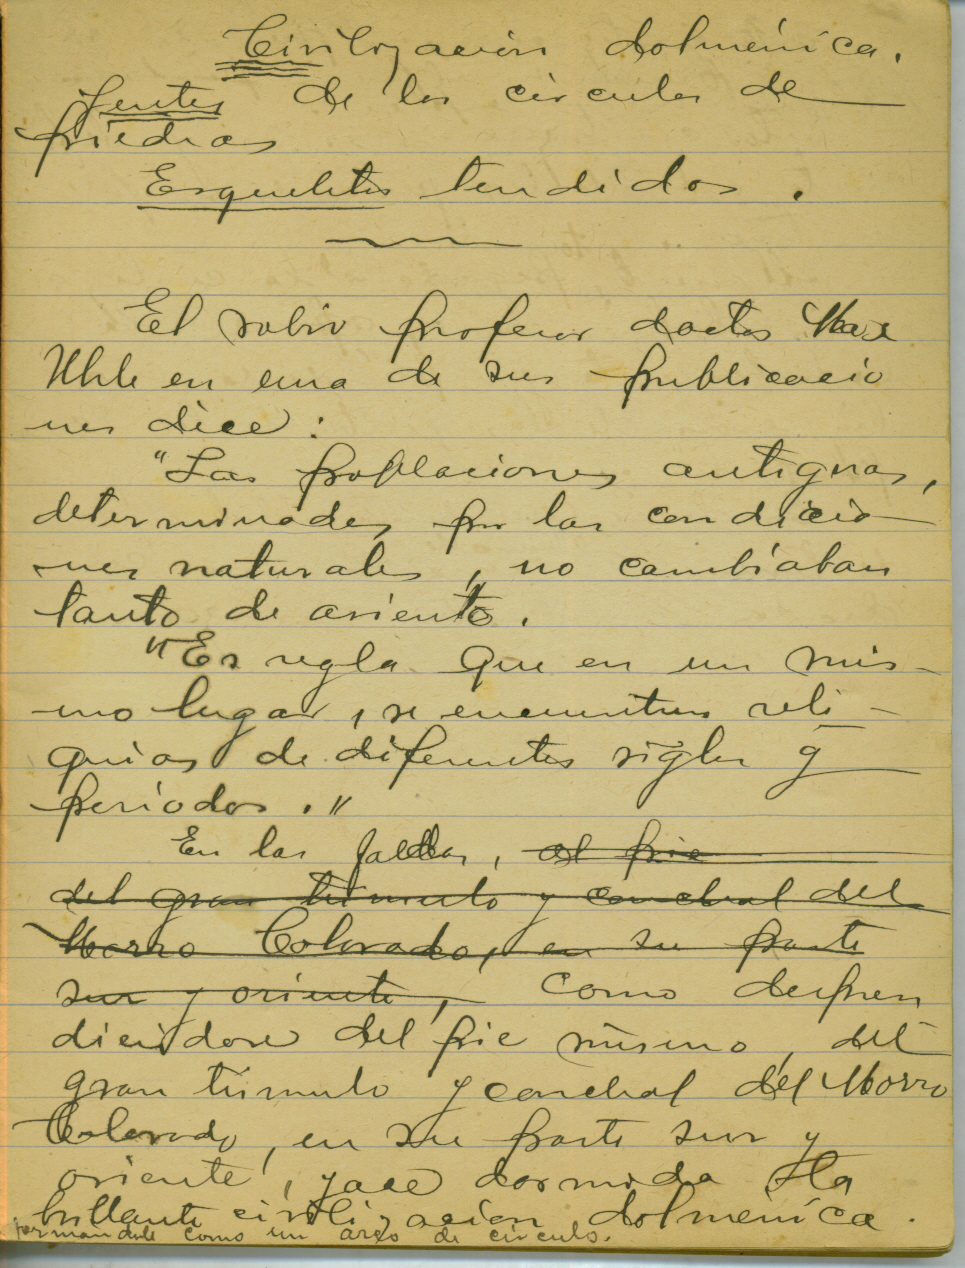 Civilización dolménica.
Jentes de los círculos de
piedras
Esqueletos tendidos.
El sabio profesor doctor Max
Uhle en una de sus publicacio
nes dice:
"Las poblaciones antiguas,
determinadas por las condicio
nes naturales, no cambiaban
tanto de asiento.
"Es regla que en un mis-
mo lugar, se encuentren reli-
quias de diferentes siglos y
períodos."
En las faldas, al pie
del gran túmulo y conchal del
Morro Colorado, en su parte
sur y oriente, como despren
diendose del pie mismo, del
gran túmulo y conchal del Morro
Colorado, en su parte sur y
oriente, yace dormida la
brillante civilización dolménica.
formandole como un arco de círculo.